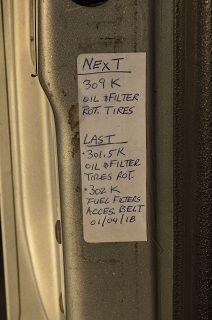 NEXT
309 K
OIL & FILTER
ROT. TIRES
LAST
•301.5K
OIL & FILTER
TIRES ROT.
•302 K
FUEL FILTERS
ACCES. BELT
01/04/18